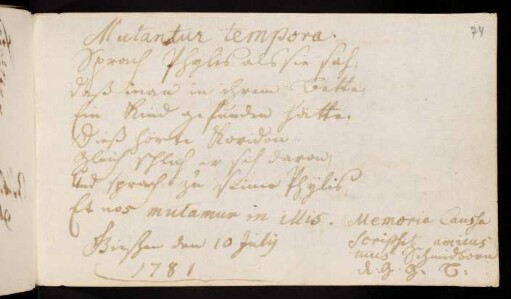 74
Mutantur tempora.
Sprach Phylis als sie sah,
daß man in ihrem Bette
ein Kind gefunden hatte.
Dieß hörte Koridon
Gleich schlich er sich davon,
Und sprach zu seiner Phylis
Et nos mutamur in illis.
Giesßen den 10 July
1781
Memoria Caussa
scripsit amicus
tuus Schmidborn
d. G. G. B.